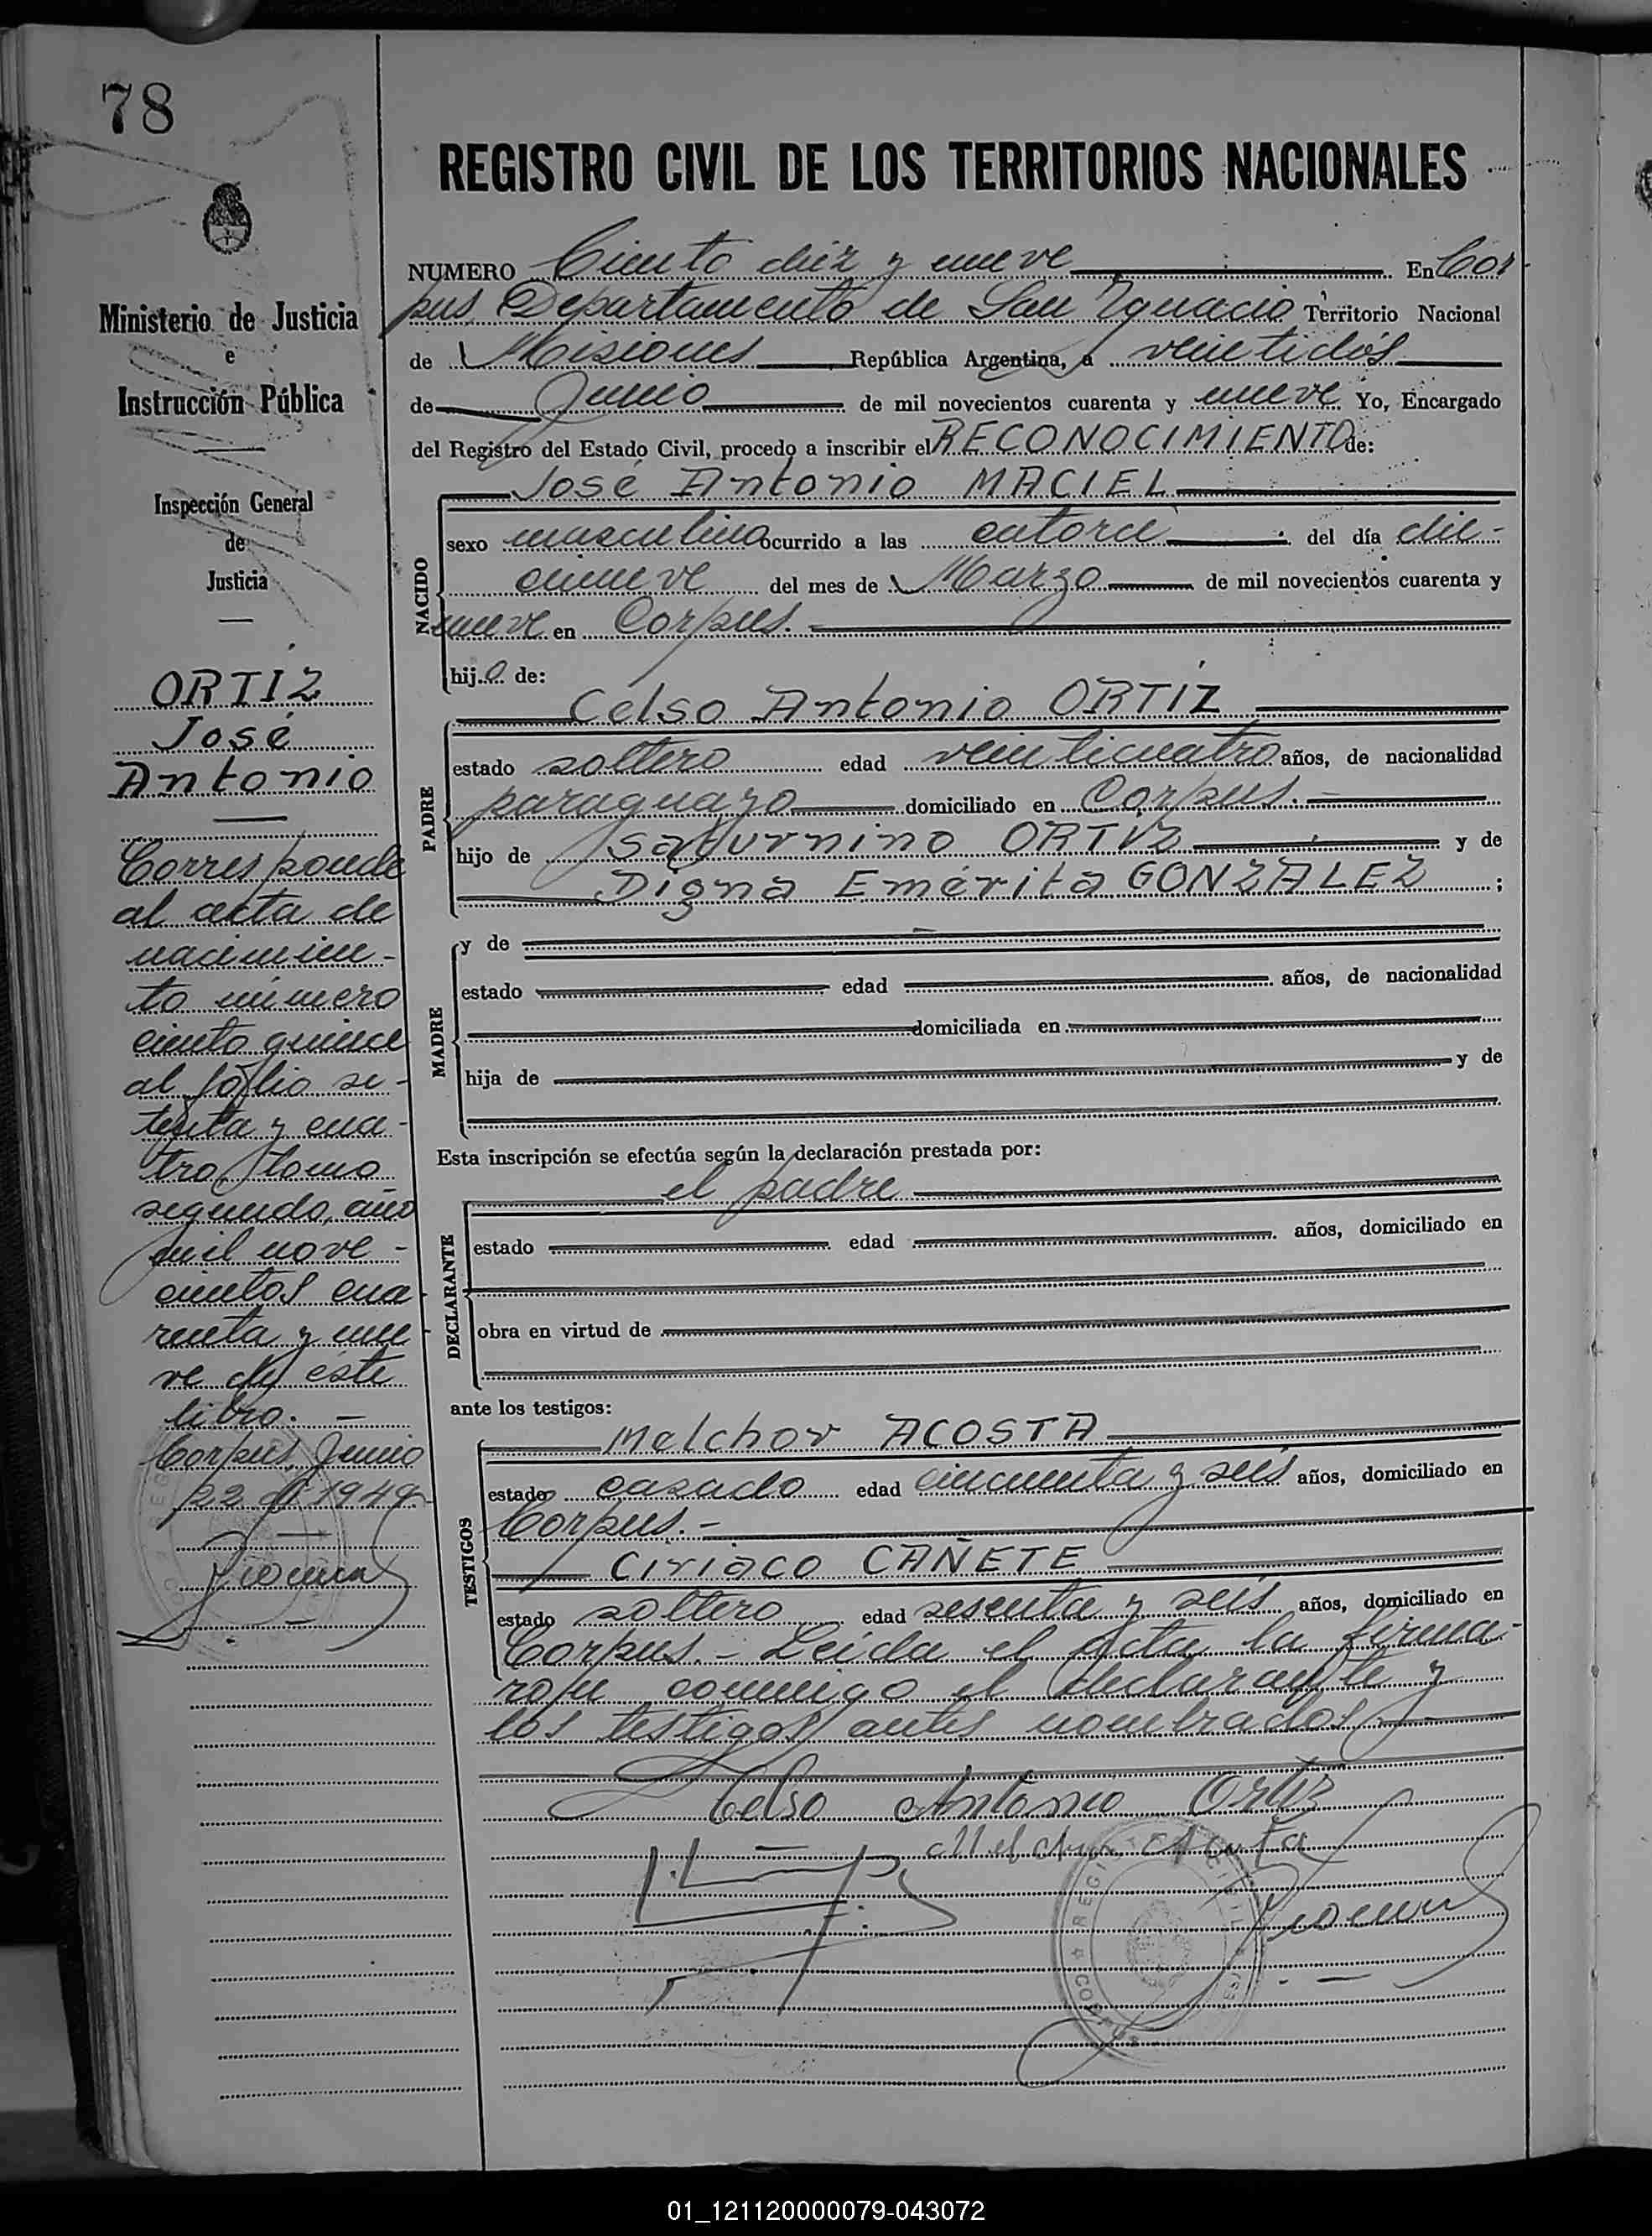 78
Ministerio de Justicia
e
Instrucción Pública
Inspección General
de
Justicia
ORTIZ
José
Antonio
Corresponde
al acta de
nacimien-
to número
ciento quince
al folio se-
tenta y cua-
tro, tomo
segundo, año
mil nove-
cientos cua-
renta y nue-
ve de éste
libro. —
Corpus, Junio
22 de 1949.-
REGISTRO CIVIL DE LOS TERRITORIOS NACIONALES
NUMERO Ciento diez y nueve En Cor-
pus Departamento de San Ygnacio Territorio Nacional
de Misiones República Argentina, a veintidós
de Junio de mil novecientos cuarenta y nueve Yo, Encargado
del Registro del Estado Civil, procedo a inscribir el RECONOCIMIENTO de:
José Antonio MACIEL
NACIDO
sexo masculino ocurrido a las catorce del día diec-
cinueve del mes de Marzo de mil novecientos cuarenta y
nueve en Corpus.
hijo de:
PADRE
Celso Antonio ORTIZ
estado soltero edad veinticuatro años, de nacionalidad
paraguayo domiciliado en Corpus.
hijo de Saturnino ORTIZ y de
Digna Emérita GONZALEZ ;
MADRE
y de
estado edad años, de nacionalidad
domiciliada en
hija de y de
Esta inscripción se efectúa según la declaración prestada por:
DECLARANTE
el padre
estado edad años, domiciliado en
obra en virtud de
ante los testigos:
TESTIGOS
Melchor ACOSTA
estado casado edad cincuenta y seis años, domiciliado en
Corpus.-
Ciriaco CAÑETE
estado soltero edad sesenta y seis años, domiciliado en
Corpus.- Leída el acta la firma-
ron conmigo el declarante y
los testigos antes nombrados.-
Celso Antonio Ortiz
Melchor Acosta
01_121120000079-043072